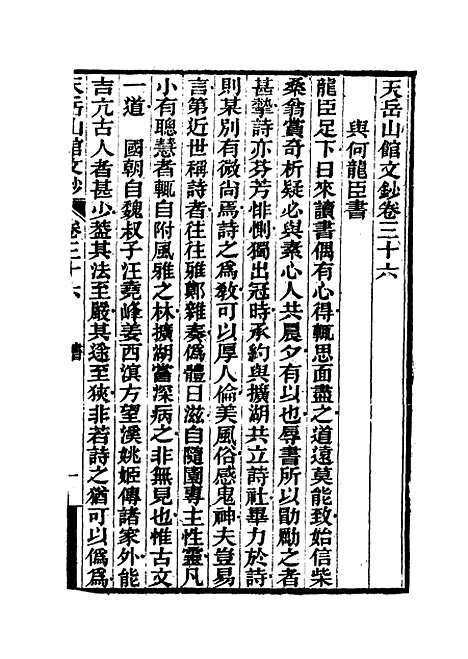 天岳山館文鈔卷三十六
與何龍臣書
龍臣足下日來讀書偶有心得輒思面盡之道遠莫能致始信柴
桑翁賞奇析疑必與素心人共晨夕有以也辱書所以勖勵之者
甚摯詩亦芬芳悱惻獨出冠時承約與擴湖共立詩社畢力於詩
則某別有微尚焉詩之為教可以厚人倫美風俗感鬼神夫豈易
言第近世稱詩者往往雅鄭雜奏偽體日滋自隨園專主性靈凡
小有聰慧者輒自附風雅之林擴湖嘗深病之非無見也惟古文
一道　國朝自魏叔子汪堯峰姜西溟方望溪姚姬傳諸家外能
吉亢古人者甚少葢其法至嚴其途至狹非若詩之猶可以偽為
天岳山館文鈔　卷三十六　書　一